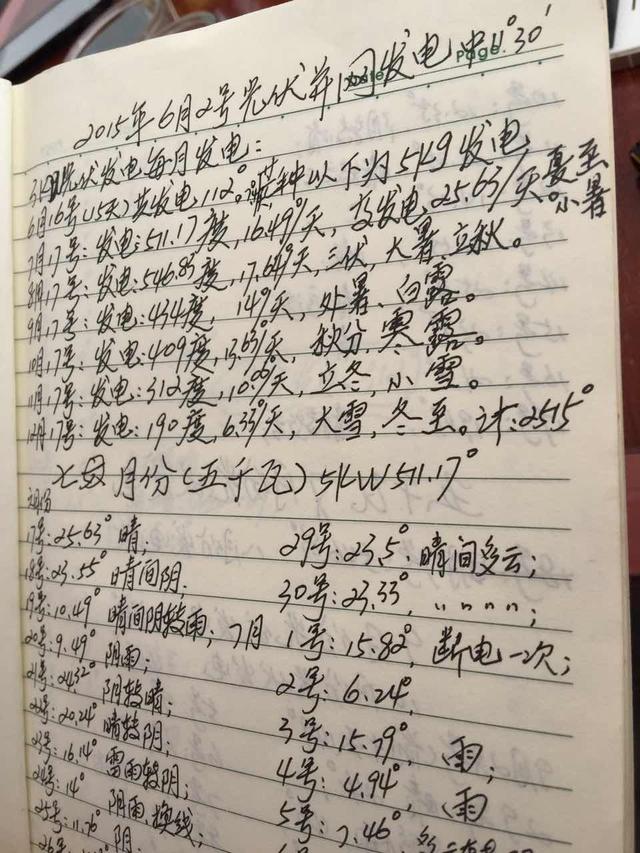 Page.
2015年6月2号光伏并网发电中11°30′
光伏发电每月发电：
6月16号(15天)共发电112°。芒种以下为5K9发电
7月17号：发电：511.17度，16.49°/天，发电25.63/天。夏至
小暑
8月17号：发电：546.85度，17.64°/天，三伏，大暑，立秋。
9月17号：发电：434度，14°/天，处暑、白露。
10月17号：发电：409度，13.63°/天，秋分，寒露。
11月17号：发电：312度，10.06°/天，立冬，小雪。
12月17号：发电：190度，6.33°/天，大雪，冬至。计：2515°
七月份(五千瓦)5KW 511.17°
17号：25.63° 晴；
29号：23.5°，晴间多云；
18号：23.55° 晴间阴；
30号：23.33°，〃〃〃〃；
19号：10.49° 晴间阴转雨；
7月1号：15.82°，断电一次；
20号：9.49° 阴雨；
2号：6.24°，
21号：24.32° 阴转晴；
3号：15.79°，雨；
22号：20.24° 晴转阴；
4号：4.94°，雨
23号：16.14° 雷雨转阴；
5号：7.46°，
24号：14° 阴雨，换线；
25号：11.76° 阴；
26号：